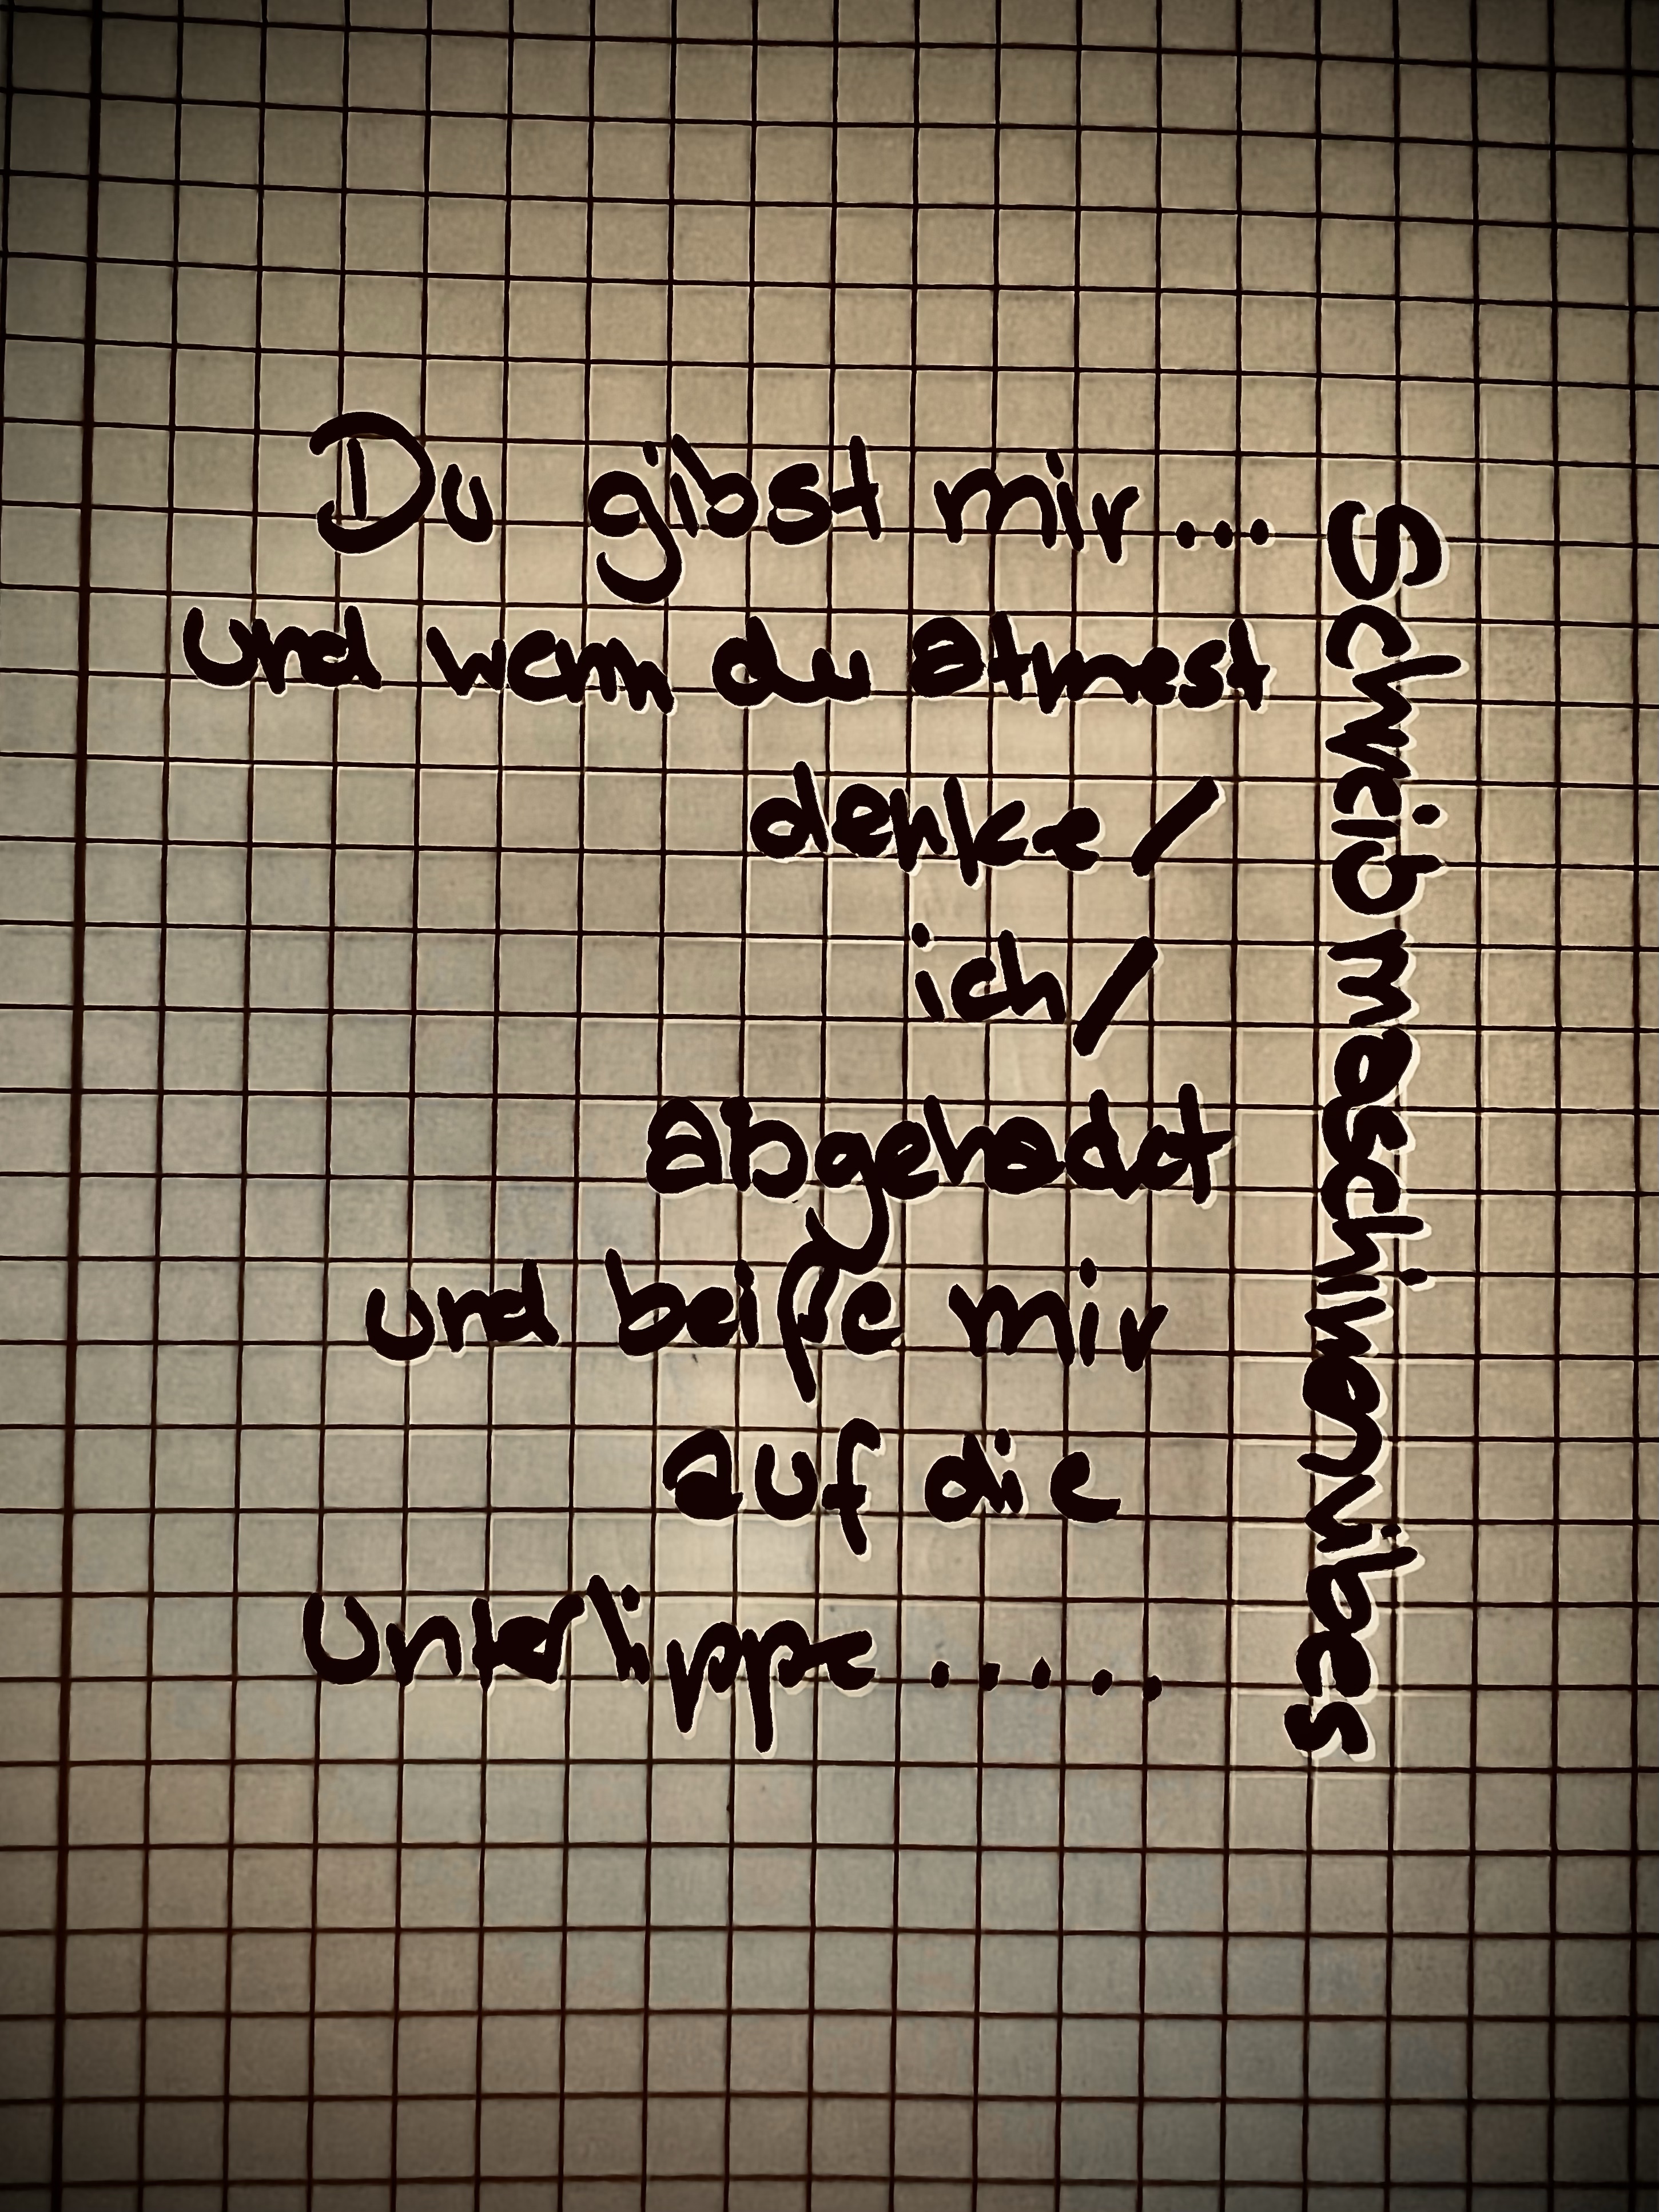 Du gibst mir...
und wenn du atmest
denke/
ich/
abgehackt
und beiße mir
auf die
Unterlippe.....
Schreibmaschinenvibes